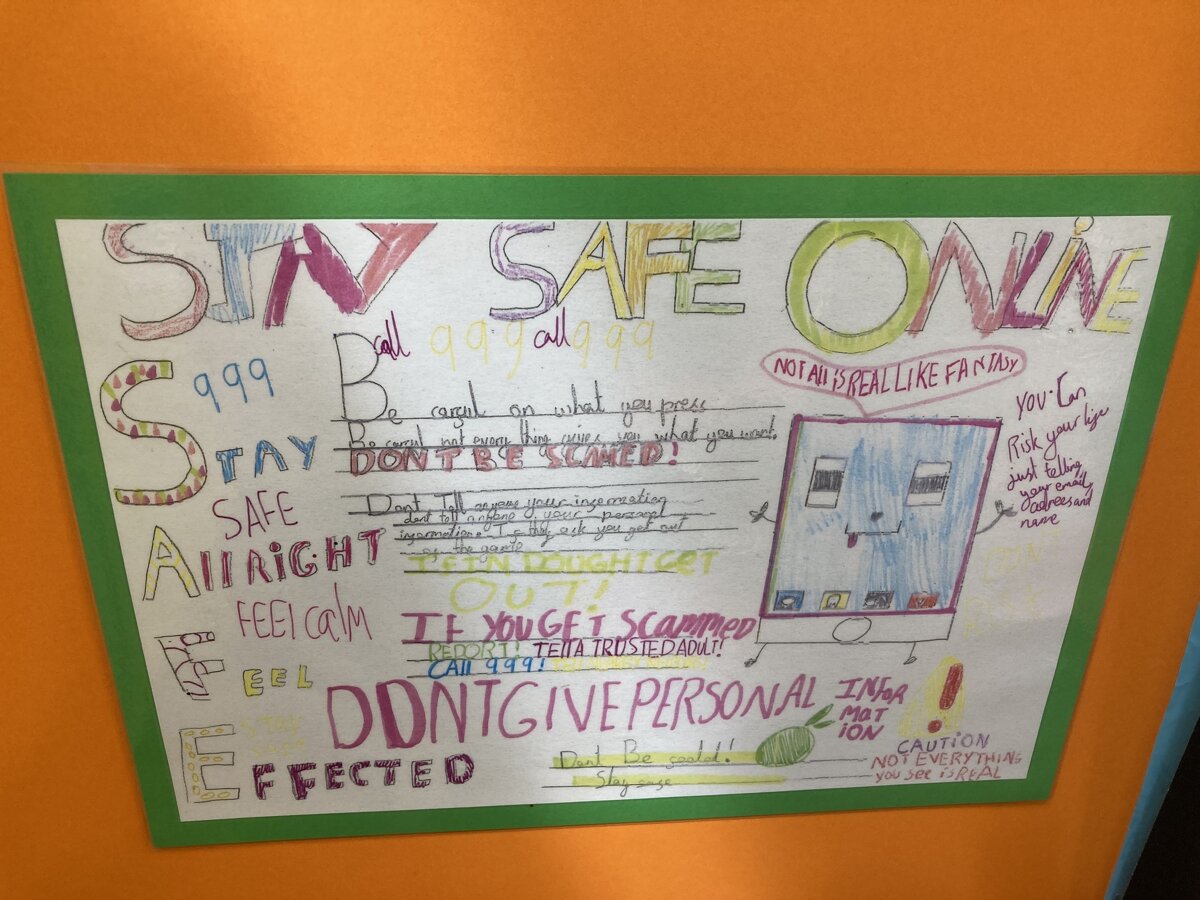 STAY SAFE ONLINE
call 999 call 999
999
Be carful on what you press
Be carful not every thing gives you what you want.
DONT BE SCAMED!
STAY
SAFE
Dont Tell anyone your information
dont tell anyone your personal
information. If they ask you get out
of the game
IF IN DOUGHT GET
OUT!
All RIGHT
FEEl calm
IF YOU GET Scammed
REPORT! TEll A TRUSTED ADULT!
CAll 999!
FEEL
STAY
DONT GIVE PERSONAL
INFOR
MAT
iON
EFFECTED
Dont Be
Stay safe
NOT All iS REAL LIKE FANTASY
YOU Can
Risk your life
just telling
your email,
adrees and
name
!
CAUTION
NOT EVERYTHING
you see is REAL